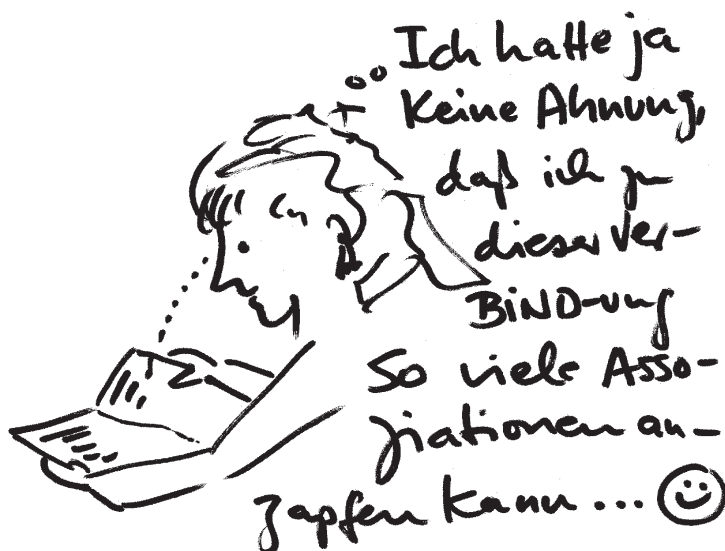 Ich hatte ja
Keine Ahnung,
daß ich zu
dieser Ver-
BiND-ung
So viele Asso-
ziationen an-
zapfen kann...